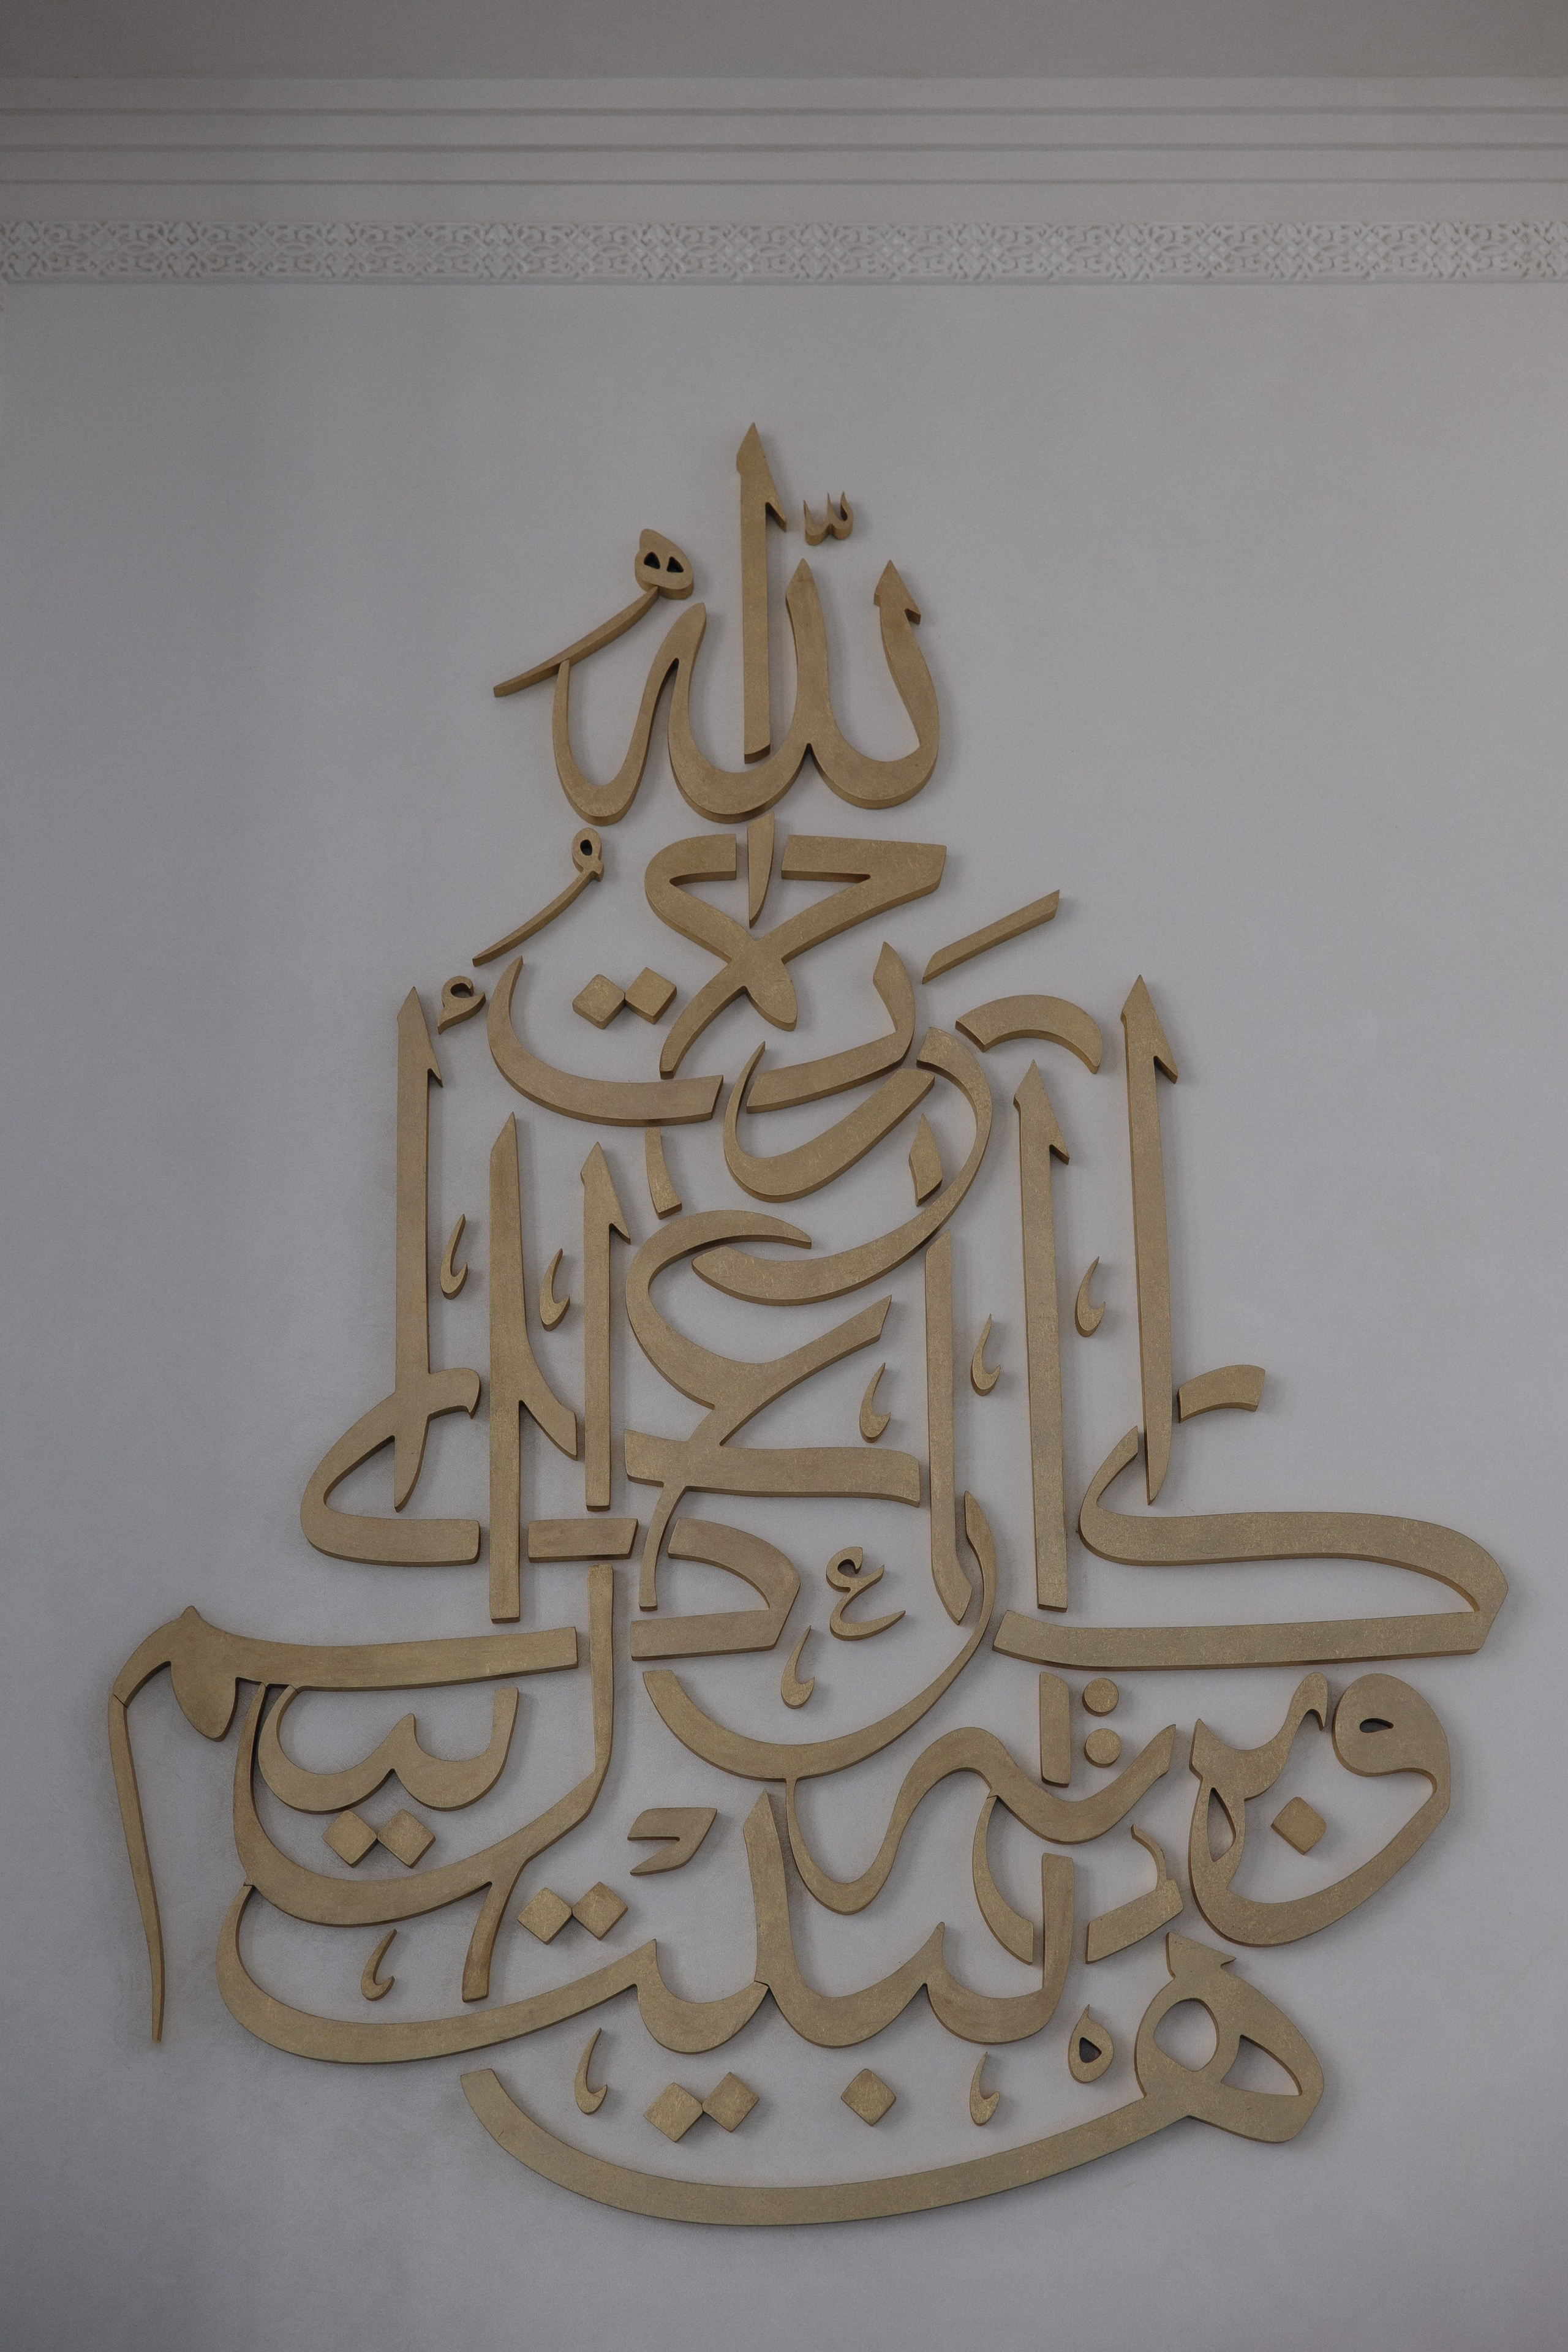 رحمت الله
وبركاته عليكم
أهل البيت